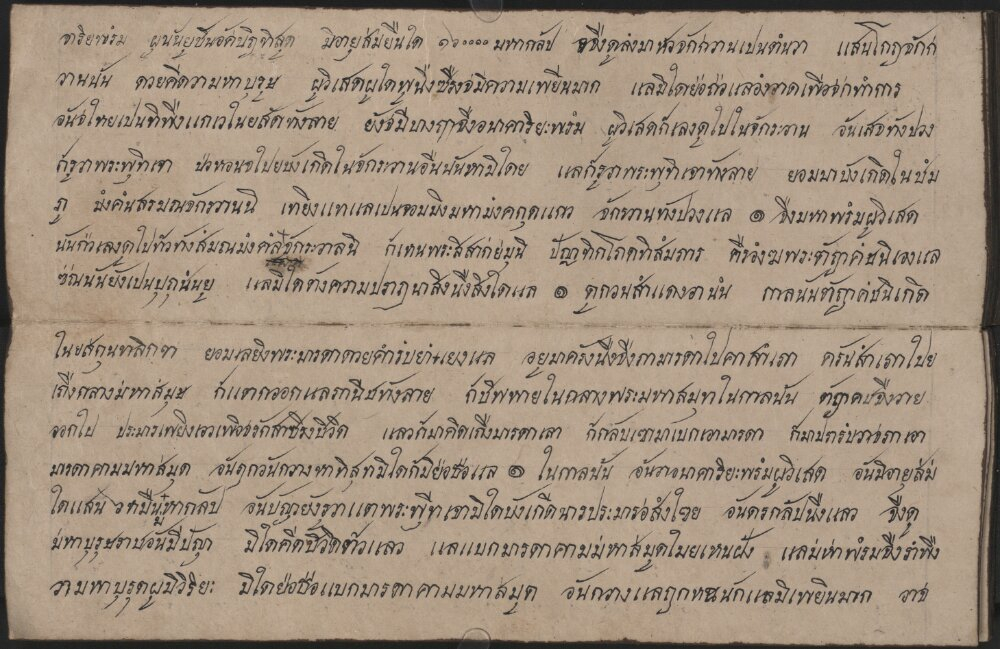 จาริยพรัม ผูนันยูชันอคบิฏฺทีสุด มีอายุสมยืนใด ๑๖๐๐๐๐ มหากลัป จจึงดูลงมาหวจักกวานเปนตำนวา แสนโกฏจักก
วานนัน ดวยคีดวามหาบุรุษ ผูวิเสดผูใดพูนึงซึงจมีความเพียนมาก แลมีใดยอถ่วแลองอาดเพือจกทำการ
อันจใหยเปนทีพืงแกเวในยสัดทังลาย ยังจมีบางฤาจึงอนาคาริยะพรัม ผูวิเสดก็เลงดูไปในจักระวาน อันเสดทังปวง
ก็รูวาพระพุทิเจา ปวหอนจไปยบังเกีดในจักระวานอืนนันหามิใดย แลก็รูวาพระพุทิเจาทังลาย ยอมมาบังเกีดในปัม
ภู มังคํนสรมณจักรวานนี เทยิงแทแลเปนจอมมิงมหามังคกุดแกว จักรวานทังปวงแล ๑ จึงมหาพรัมผูวิเสด
นันกวเลงดูไปทัวทังสํมณมังคํลจักระวาลนิ ก็เหนพระสีสากยมุนี ปัญฺาทิกโภทิสํมภาร คืรอังฆพระตัฏฺาคํตนิเองแล
ซํณนนัยังเปนปุถุนํนยู แลมีใดตังความปราฏฺนาสิงนึงสิงใดแล ๑ ดูกวนสำแดงวานัน กาลนันตัฏฺาคํตนิเกีด
ในยสกุนหลิกทา ยอมเลยิงพระมารดาดวยคำรบยำเยงแล อยูมาครังนึงจึงภามารดาไปคาสำเภา ครันสำเภาไปย
เถีงกลางมหาสมุษ ก็แตกออกแลวานิชทังลาย ก็ชิพหายในกลางพระมหาสมุทาในกาลนัน ตัฏฺาคตจึงวาย
ออกไป ประมารเพยิงเอวเพือจรักสาซึงชีวีด แลวก็มาคิดเถึงมารดาเลา ก็กลับเขามาแบกเอามารดา ก็มาปรกรบวายภาเอา
มารดาคามมหาสมุด อันฤกวันกวางหาทิสุทมิใดก็มิยอชอแล ๑ ในกาลนัน อันวาอนาคาริยะพรัมผูวิเสด อันมีอายุสมํ
ใดแสน หกมืนมหากลัป อันปัญายังรูวาแตพระพุทิเจามิใดบังเกีดนารประมารอสังไขย อันตรกลัปนึงแลว จึงดู
มหาบุรุษราชอันมีปัญา มิใดคีดชีวิดตัวแลว แลแบกมารดาคามมหาสมูดใมยเหนฝัง แลมหาพรัมจึงรำพึง
วามหาบุรุดผูมีวิริยะ มิใดยอชอแบกมารดาคามมหาสมูด อันกวางแลฤกหนักแลมีเพยินมาก วาช